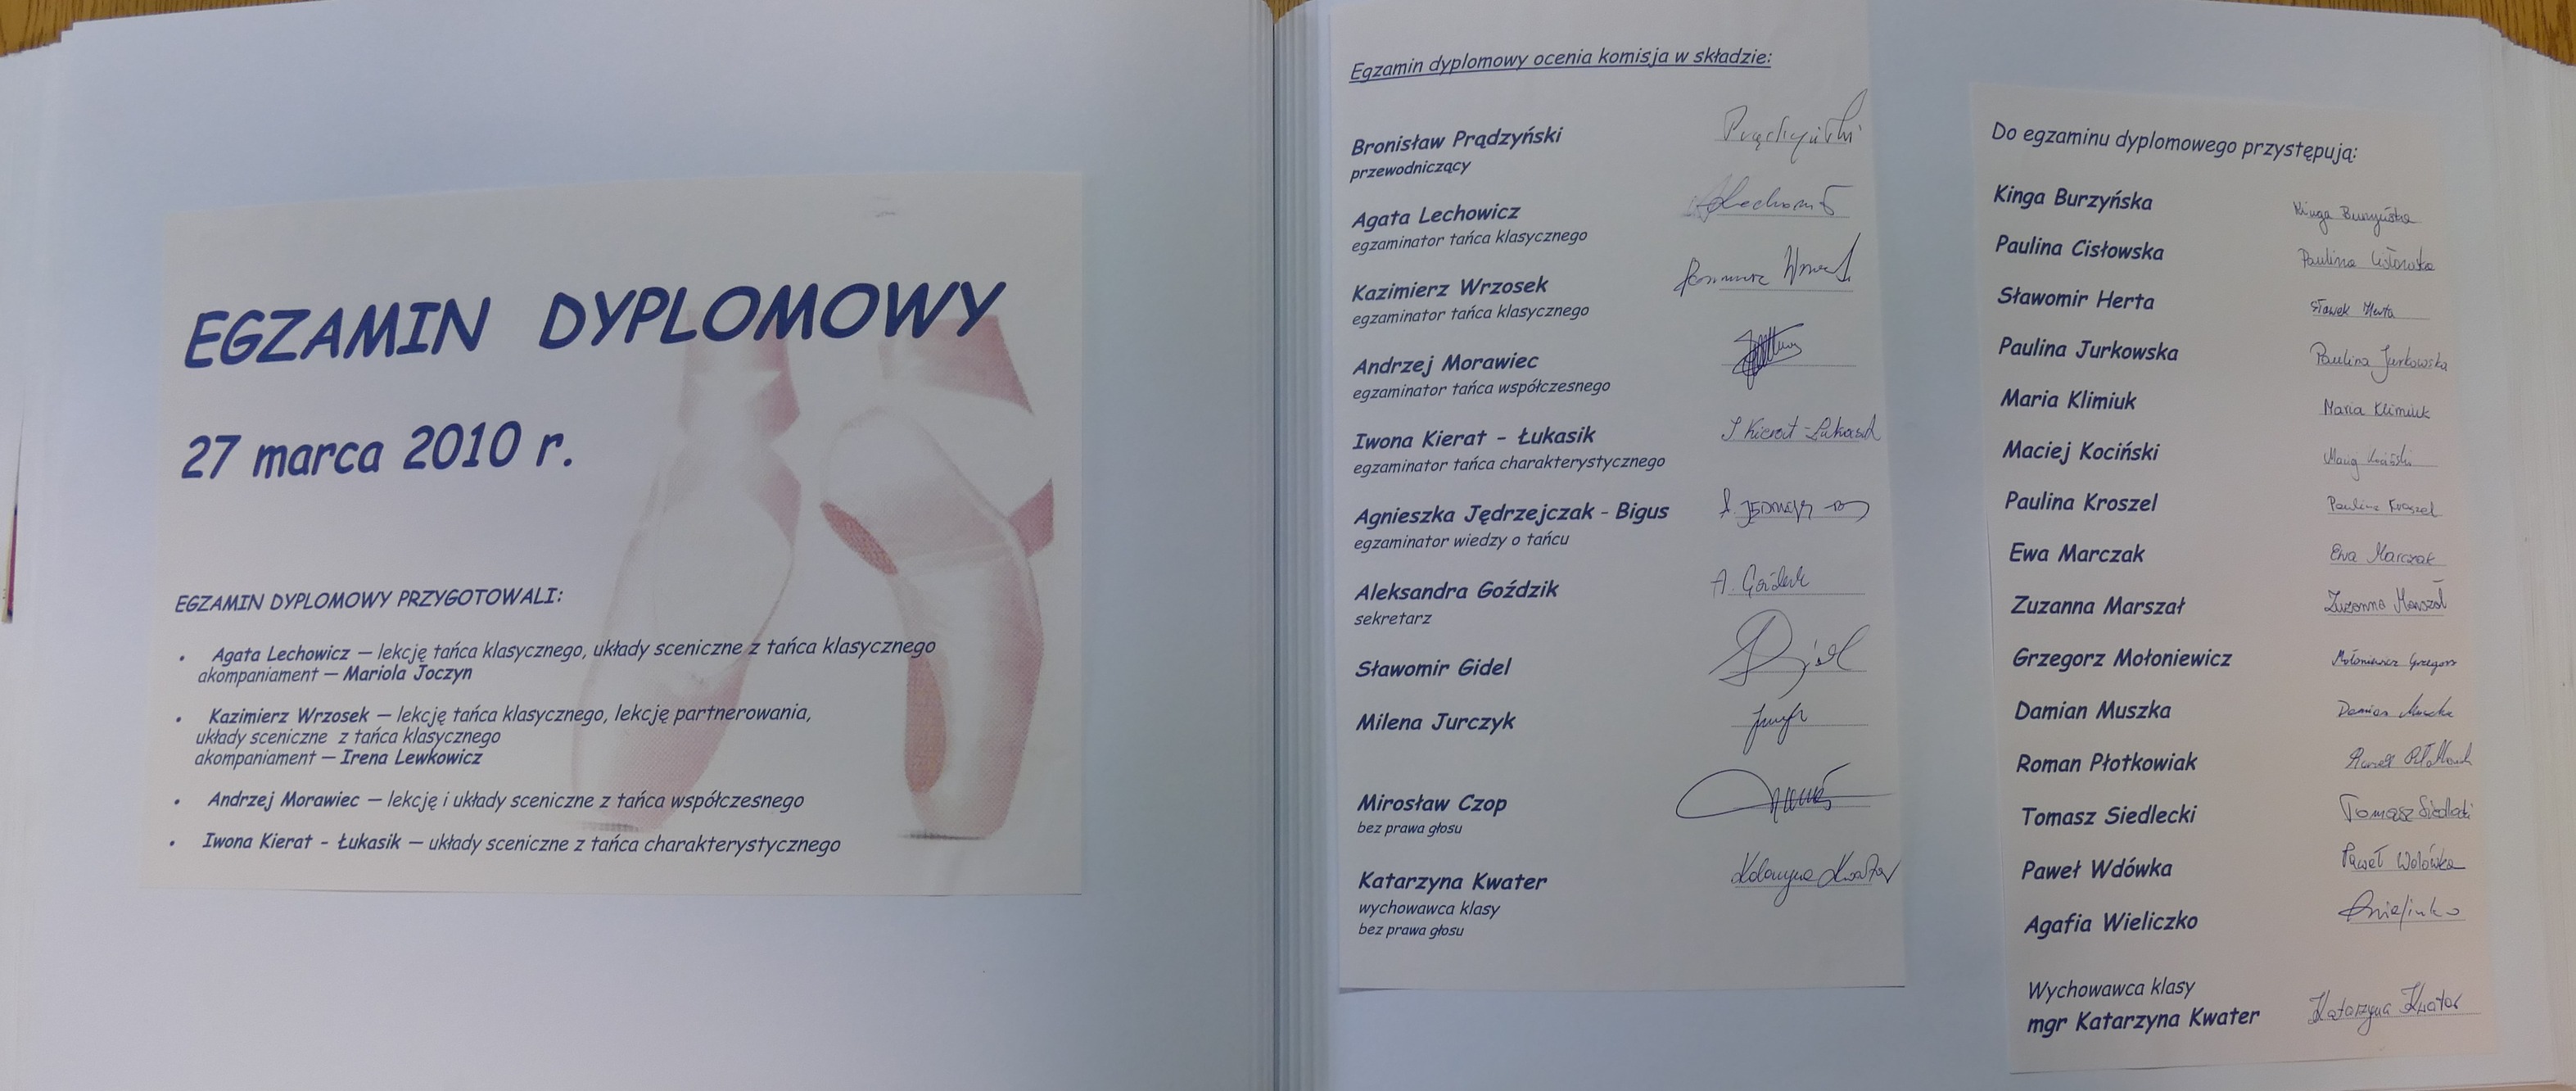 EGZAMIN DYPLOMOWY
27 marca 2010 r.
EGZAMIN DYPLOMOWY PRZYGOTOWALI:
• Agata Lechowicz – lekcję tańca klasycznego, układy sceniczne z tańca klasycznego
akompaniament – Mariola Joczyn
• Kazimierz Wrzosek – lekcję tańca klasycznego, lekcję partnerowania,
układy sceniczne z tańca klasycznego
akompaniament – Irena Lewkowicz
• Andrzej Morawiec – lekcję i układy sceniczne z tańca współczesnego
• Iwona Kierat - Łukasik – układy sceniczne z tańca charakterystycznego
Egzamin dyplomowy ocenia komisja w składzie:
Bronisław Prądzyński
przewodniczący
Agata Lechowicz
egzaminator tańca klasycznego
Kazimierz Wrzosek
egzaminator tańca klasycznego
Andrzej Morawiec
egzaminator tańca współczesnego
Iwona Kierat - Łukasik I Kierat-Łukasik
egzaminator tańca charakterystycznego
Agnieszka Jędrzejczak - Bigus
egzaminator wiedzy o tańcu
Aleksandra Goździk A. Goździk
sekretarz
Sławomir Gidel
Milena Jurczyk
Mirosław Czop
bez prawa głosu
Katarzyna Kwater Katarzyna Kwater
wychowawca klasy
bez prawa głosu
Do egzaminu dyplomowego przystępują:
Kinga Burzyńska Kinga Burzyńska
Paulina Cisłowska Paulina Cisłowska
Sławomir Herta Sławek Herta
Paulina Jurkowska Paulina Jurkowska
Maria Klimiuk Maria Klimiuk
Maciej Kociński Maciej Kociński
Paulina Kroszel Paulina Kroszel
Ewa Marczak Ewa Marczak
Zuzanna Marszał Zuzanna Marszał
Grzegorz Mołoniewicz Mołoniewicz Grzegorz
Damian Muszka Damian Muszka
Roman Płotkowiak
Tomasz Siedlecki Tomasz Siedlecki
Paweł Wdówka Paweł Wdówka
Agafia Wieliczko
Wychowawca klasy
mgr Katarzyna Kwater Katarzyna Kwater